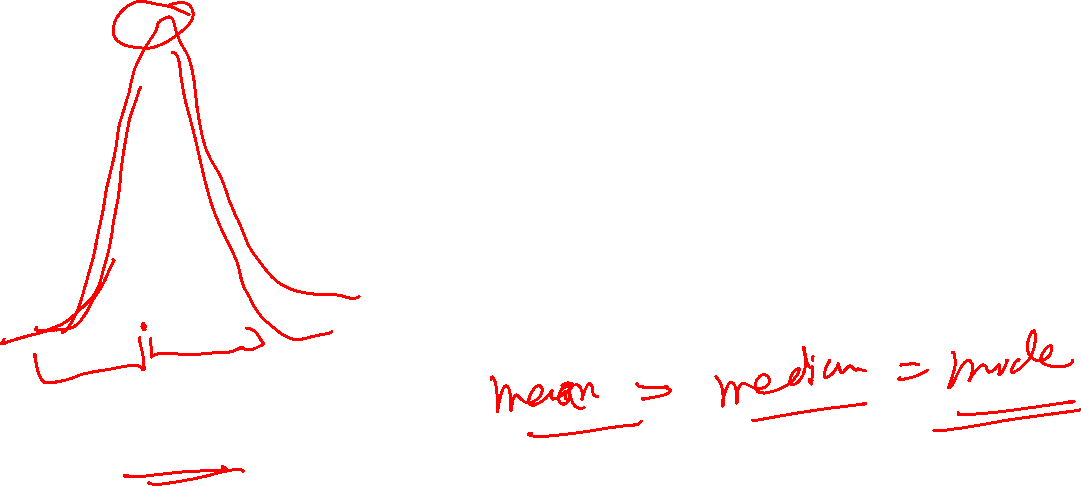 mean = median = mode